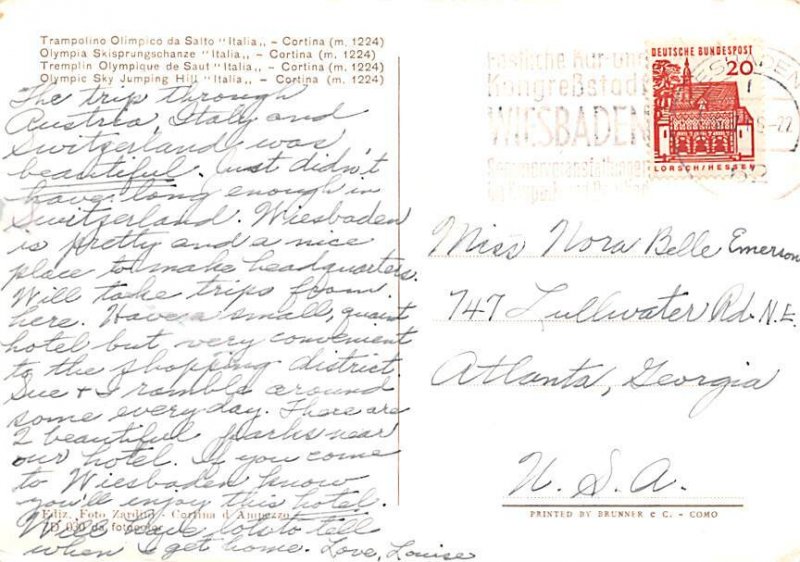 Trampolino Olimpico da Salto "Italia,, – Cortina (m. 1224)
Olympia Skisprungschanze "Italia,, – Cortina (m. 1224)
Tremplin Olympique de Saut "Italia,, – Cortina (m. 1224)
Olympic Sky Jumping Hill "Italia,, – Cortina (m. 1224)
The trip through
Austria, Italy and
Switzerland was
beautiful. Just didn't
have long enough in
Switzerland. Wiesbaden
is pretty and a nice
place to make headquarters.
Will take trips from
here. Have a small, quaint
hotel but very convenient
to the shopping district.
Sue + I ramble around
some everyday. There are
2 beautiful parks near
our hotel. If you come
to Wiesbaden know
you'll enjoy this hotel.
Will have lots to tell
when I get home. Love, Louise
Ediz. Foto Zardini - Cortina d'Ampezzo
da fotocolor
Kur- und
Kongreßstadt
WIESBADEN
WIESBADEN
DEUTSCHE BUNDESPOST
20
LORSCH/HESSEN
Miss Nora Belle Emerson
747 Lullwater Rd. N.E.
Atlanta, Georgia
U. S. A.
PRINTED BY BRUNNER & C. – COMO